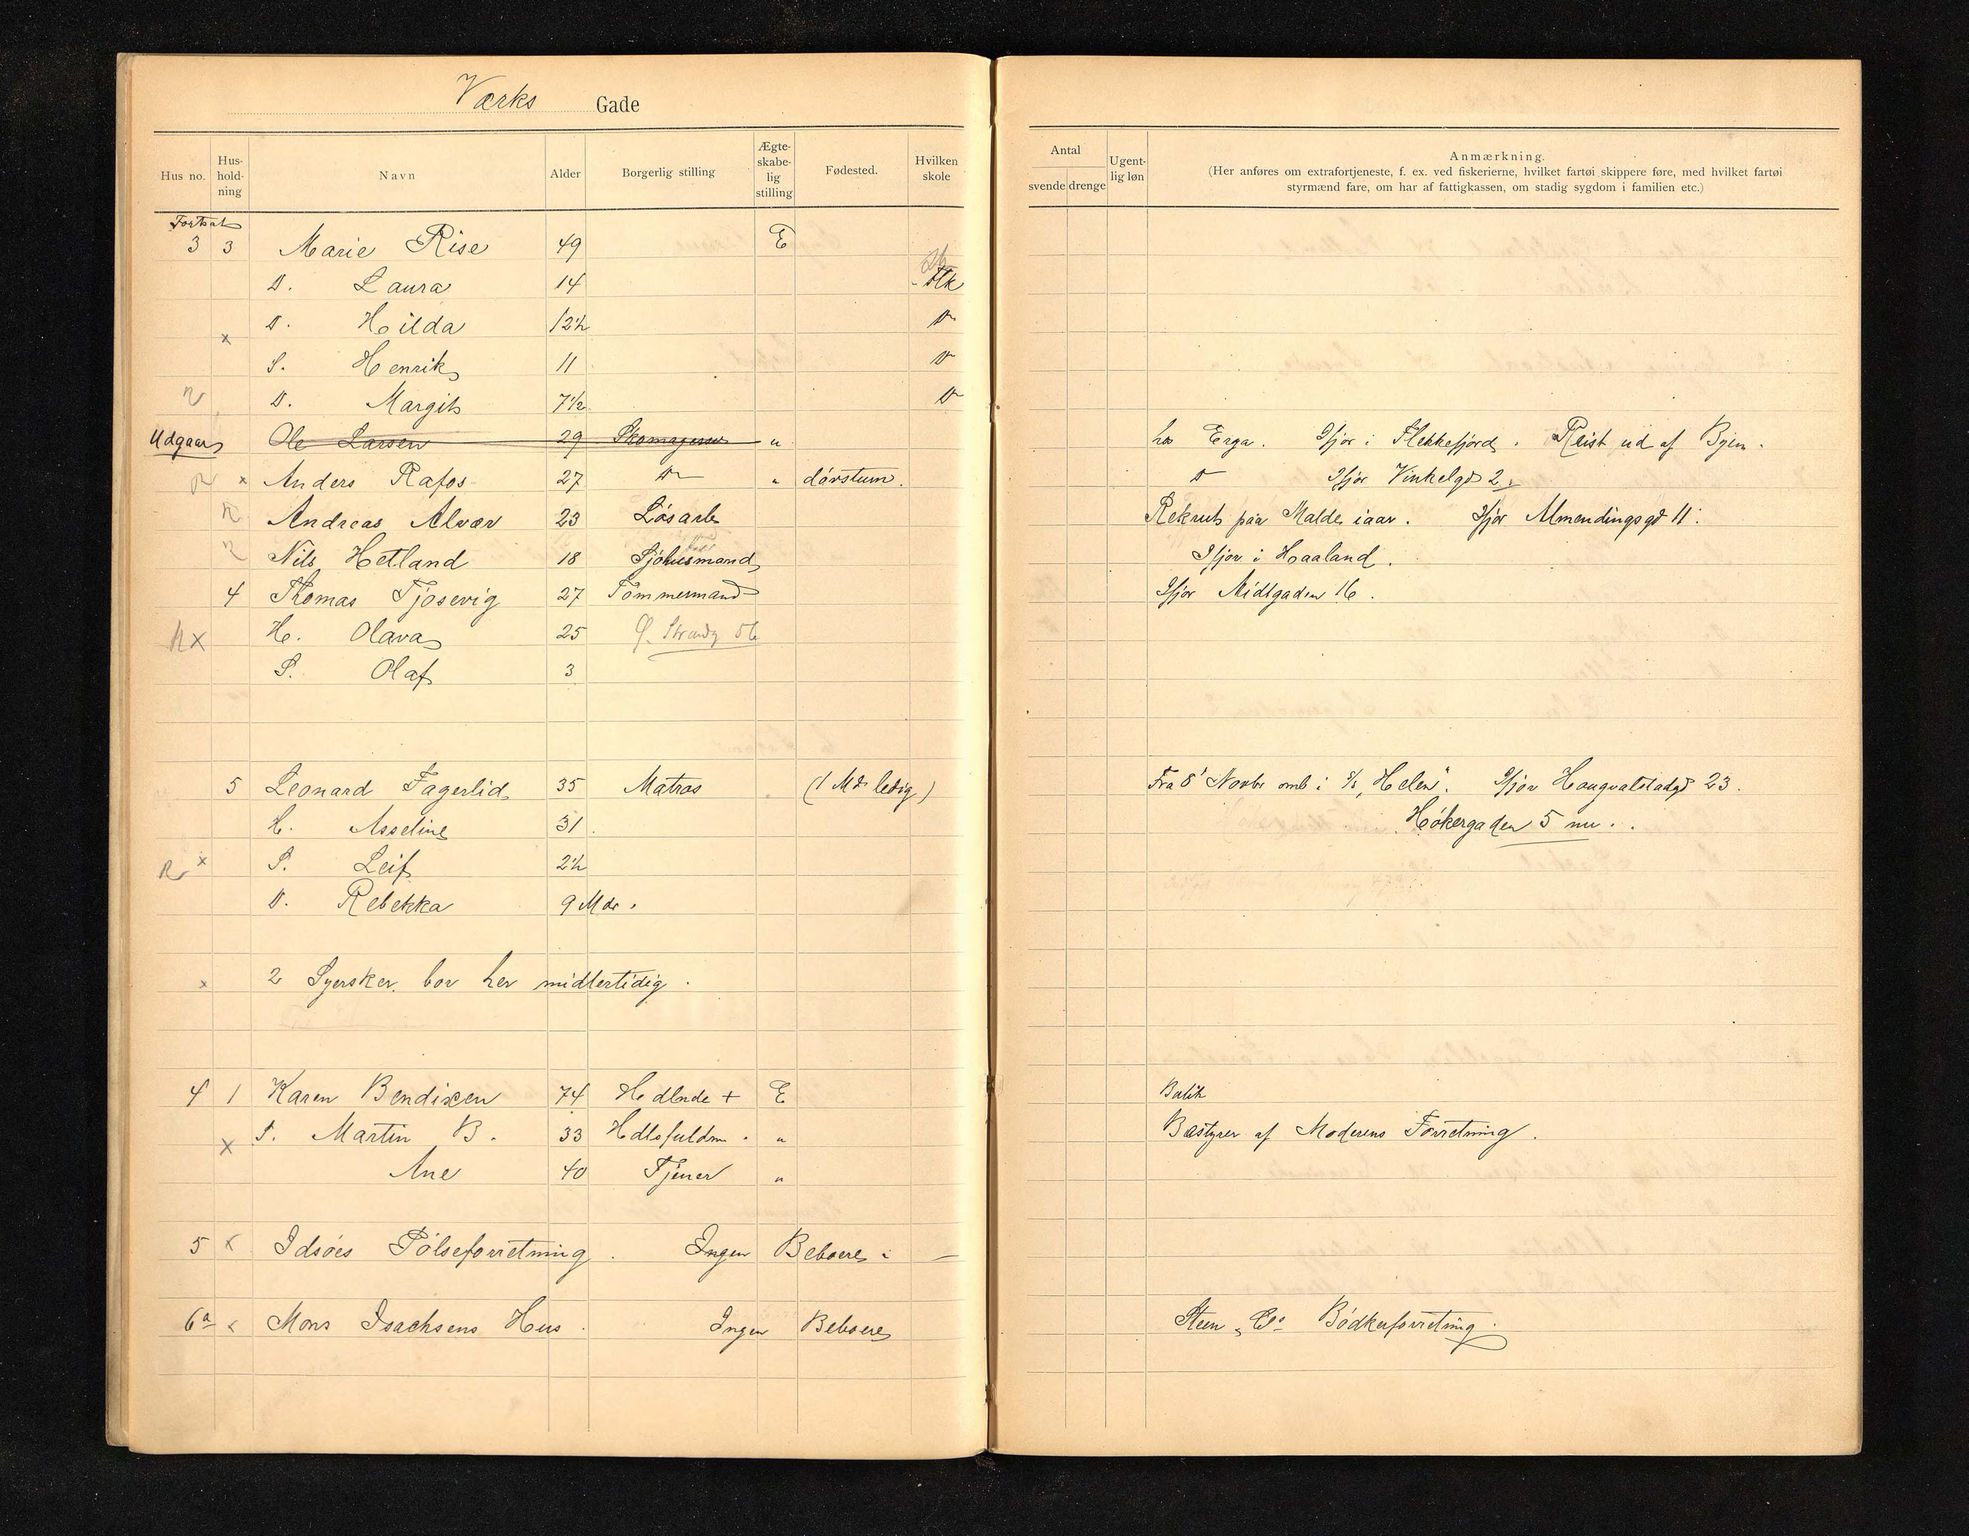 Værks Gade
Hus no. Hus-holdning Navn Alder Borgerlig stilling Ægte-skabe-lig stilling Fødested. Hvilken skole
Antal svende drenge Ugent-lig løn Anmærkning.
(Her anføres om extrafortjeneste, f. ex. ved fiskerierne, hvilket fartøi skippere føre, med hvilket fartøi
styrmænd fare, om har af fattigkassen, om stadig sygdom i familien etc.)
Fortsat
3 3 Marie Rise 49 E
D. Laura 14 Flk
x D. Hilda 12½ Do
S. Henrik 11 Do
D. Margit 7½ Do
Udgaar Ole Larsen 29 Skomagersv " hos Erga. Ifjor i Flekkefjord. Reist ud af Byen.
x Anders Rafos 27 Do " døvstum. Do Ifjor Vinkelgd 2.
Andreas Alvær 23 Løsarb Rekrut paa Malde iaar. Ifjor Almendingsgd 11.
Nils Hetland 18 Sjøhusmand Ifjor i Haaland.
4 Thomas Tjosevig 27 Tømmermand Ifjor Midtgaden 16.
R x H. Olava 25 Ø. Strandg 56
S. Olaf 3
5 Leonard Fagerlid 35 Matros (1 Md. ledig) Fra 8' Novbr omb i S/S "Helen". Ifjor Hougvalstadgd 23.
H. Asseline 31. Høkergaden 5 nu.
R x S. Leif 2½
D. Rebekka 9 Mdr.
x 2 Syersker bor her midlertidig.
4 1 Karen Bendixen 74 Hdlnde + E Butik
x S. Martin B. 33 Hdlsfuldm. " Bestyrer af Moderens Forretning.
Ane 40 Tjener "
5 x Idsøes Pølseforretning. Ingen Beboere
6a x Mons Isachsens Hus. Ingen Beboere Steen & Co Bødkerforretning.